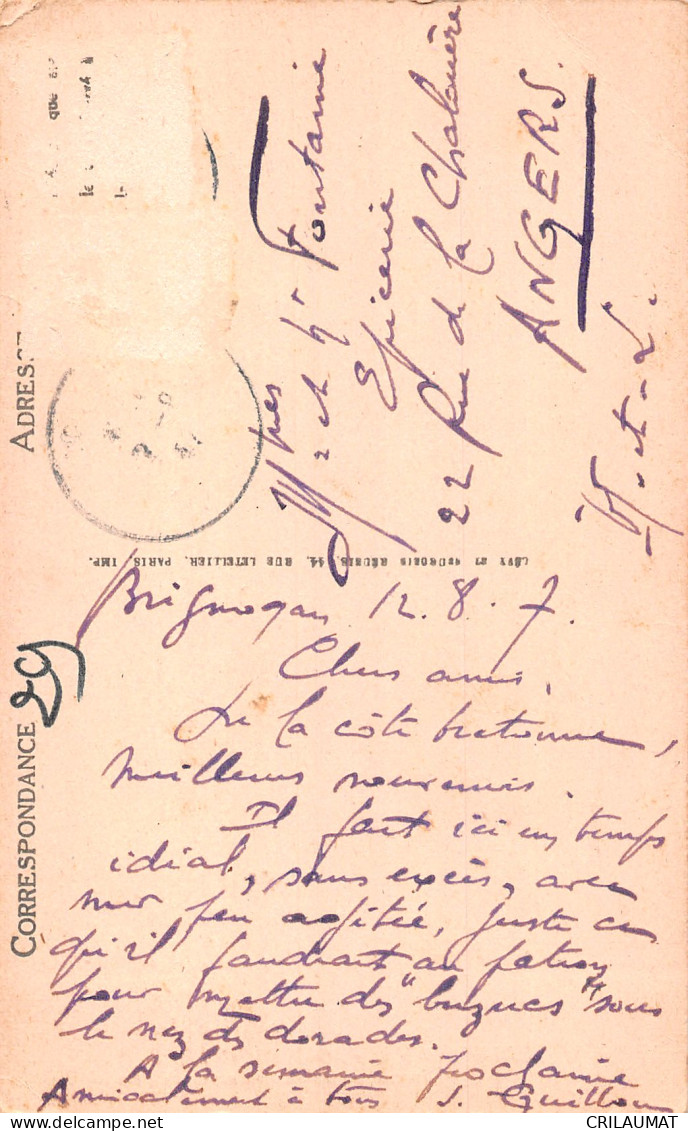 CORRESPONDANCE
ADRESSE
29
Mr et Mme Fontaine
Epicerie
22 Rue de la Chalouère
ANGERS.
M.-et-L.
LÉVY ET NEURDEIN RÉUNIS, 44, RUE LETELLIER, PARIS IMP.
Brignogan 12. 8. 7.
Chers amis,
De la côte bretonne,
meilleurs souvenirs.
Il fait ici un temps
idéal, sans excès, avec
mer peu agitée, juste ce
qu'il faudrait au patron
pour mettre des "buzucs" sous
le nez des dorades.
A la semaine prochaine
Amicalement à tous J. Guillou
CRILAUMAT